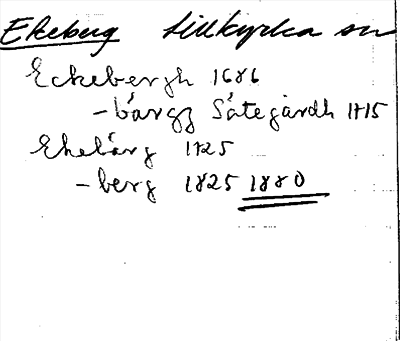 Ekeberg Lillkyrka sn
Eckebergh 1686
-bärgg Sätegårdh 1715
Ekebärg 1725
-berg 1825 1880